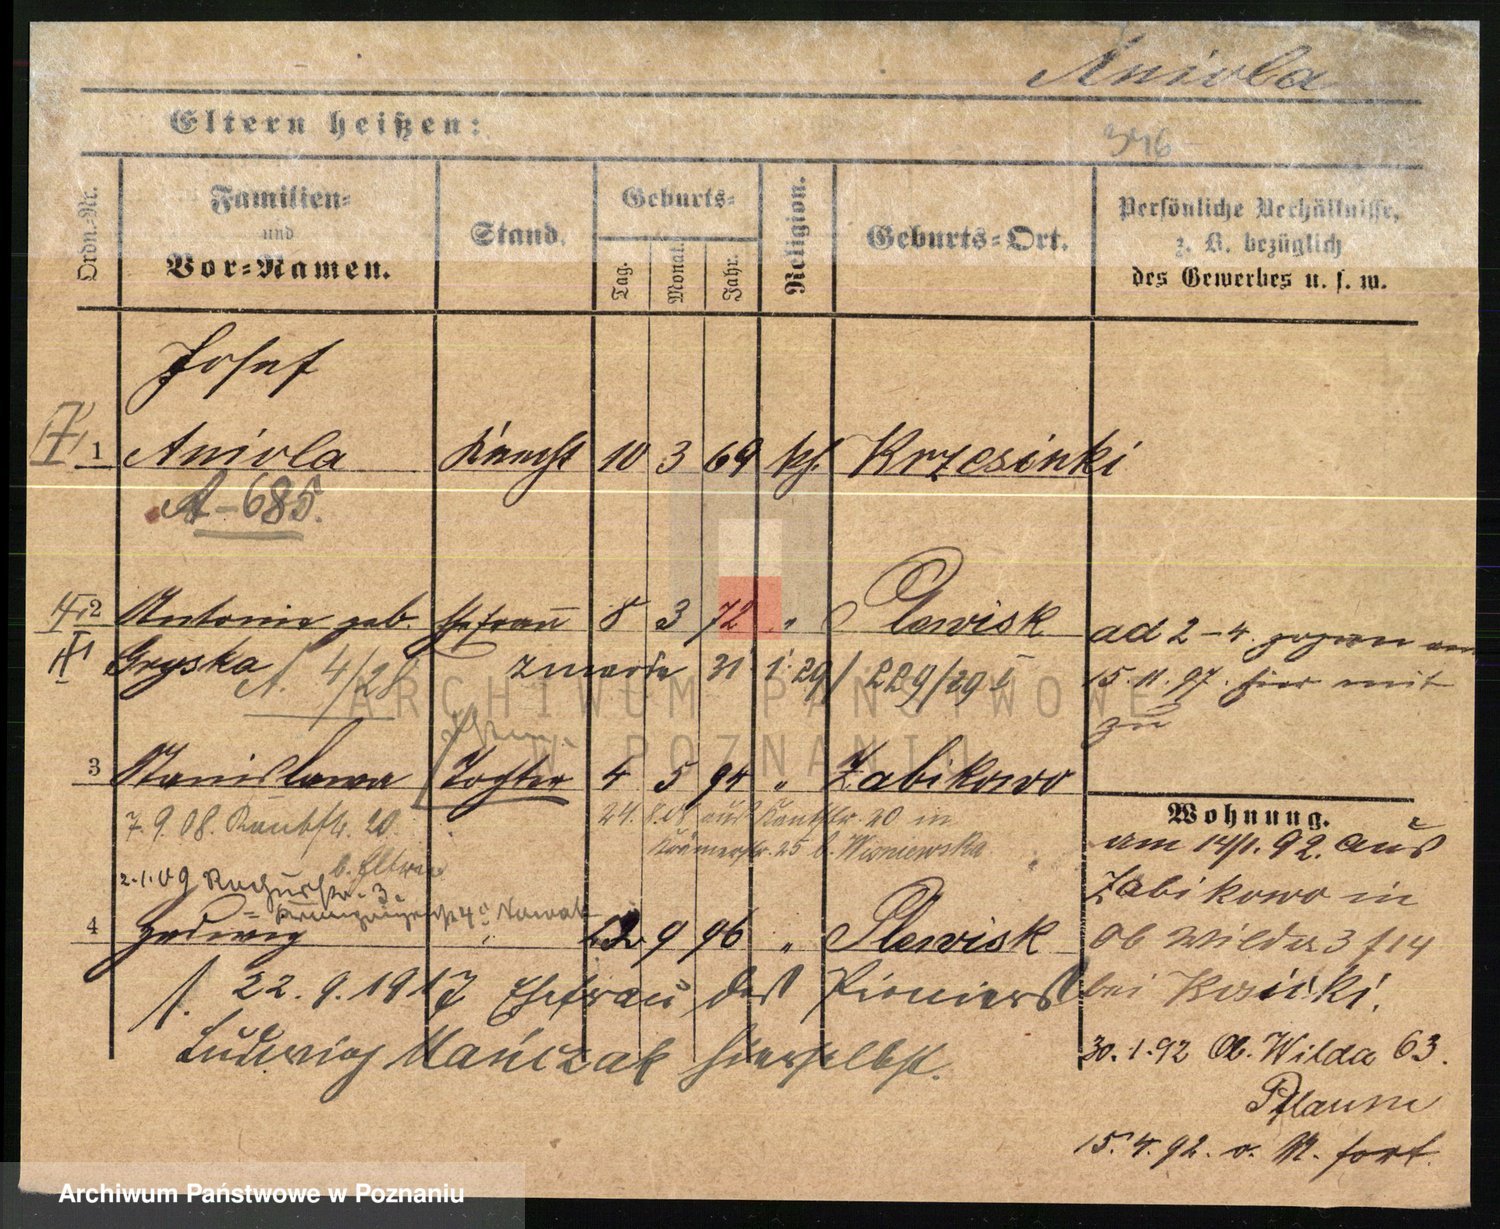 Aniola
Eltern heißen:
376
Ordn.-Nr.
Familien-
und
Vor-Namen.
Stand.
Geburts-
Tag.
Monat.
Jahr.
Religion.
Geburts-Ort.
Persönliche Verhältnisse,
z. B. bezüglich
des Gewerbes u. s. w.
Josef
1 Aniola Knecht 10 3 69 kth. Krzesinki
A-685.
2 Antonie geb. Ehefrau 8 3 72 " Plewisk
Gryska A. 4/28 zmarła 31 1. 29/ 229/29 I
ad 2-4 zugezogen am
15.11.97. hier mit
zu
3 Stanislawa Tochter 4 5 94 " Zabikowo
7.9.08. Kantstr. 20.
b. Eltern
24. aus Kantstr. 20 in
Krämerstr. 25 b. Wisniewska
2.1.09 3.
Nowak
4 Hedwig " 12 9 96 " Plewisk
22.9.1917 Ehefrau des Pioniers
Ludwig Mańczak hierselbst.
Wohnung.
am 14/1.92. aus
Zabikowo in
Ob Wilda 3 f 14
bei
30.1.92 Ob. Wilda 63.
Pflaume
15.4.92. v. N. fort.
ARCHIWUM PAŃSTWOWE
W POZNANIU
Archiwum Państwowe w Poznaniu